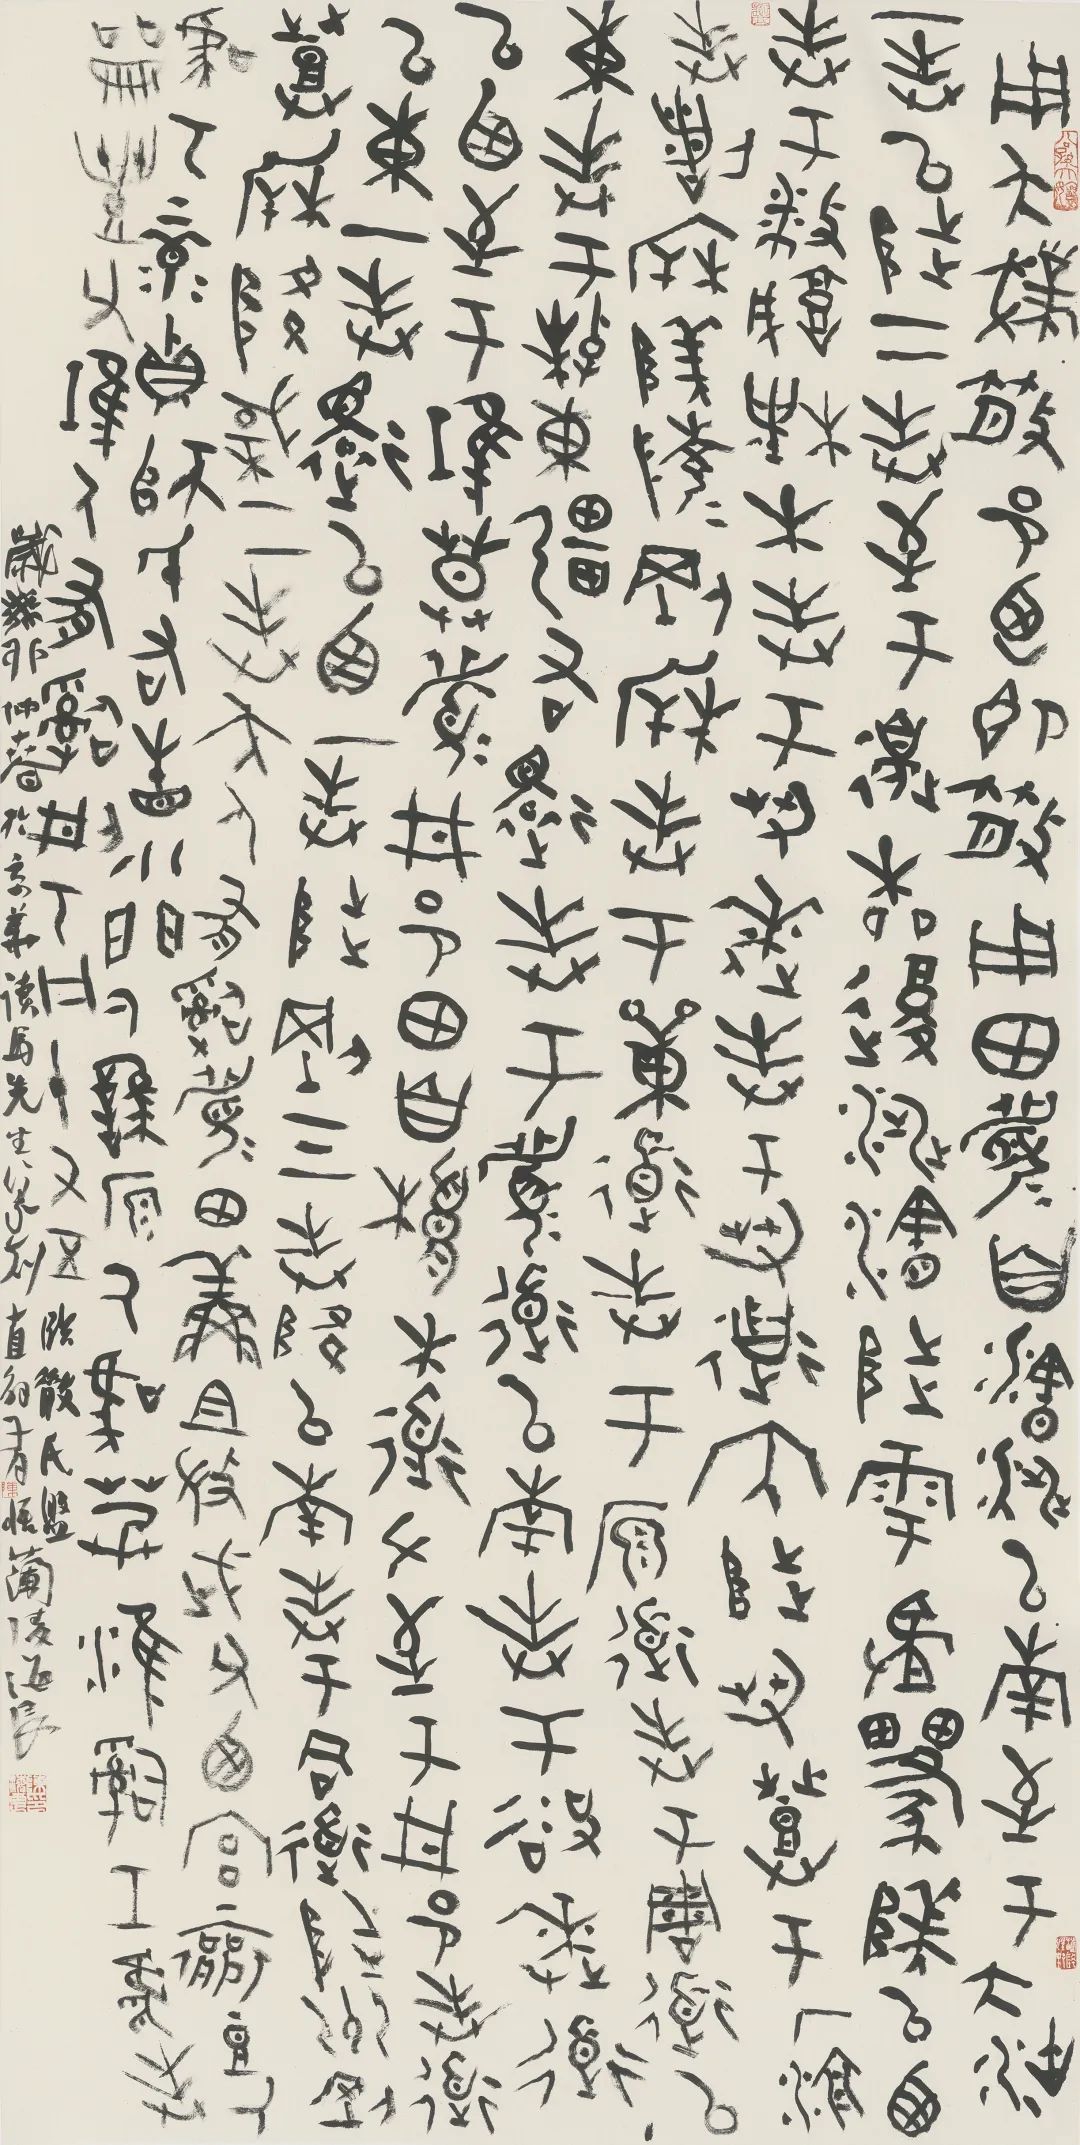 用夨撲散邑迺即散用田眉自瀗涉以南至于大沽
一封以陟二封至于邊柳復涉瀗陟雩𠭯𨻰以西
封于敝城楮木封于芻逨封于芻道内陟芻登于厂湶
封剖桩陵剛桩封于單道封于原道封于周道以
東封于東疆右還封于眉道以南封于逨道
以西至于鴻莫眉井邑田自根木道左至于井邑封道
以東一封還以西一封陟剛三封降以南封于同道陟州剛
登桩降棫二封夨人有司眉田鮮且微武父西宮襄豆人
虞丂彔貞師氏右眚小門人繇原人虞莽淮司工虎孝
豐父鴻人有司荆丂凡十又五 臨散氏盤
歲癸卯仲春於京華讀馬先生篆刻直有悟蘭陵海長